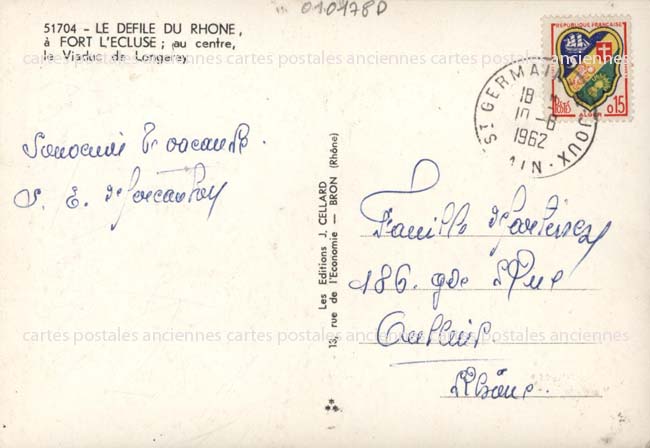 010478D
51704 - LE DEFILE DU RHONE,
à FORT L'ECLUSE ; au centre,
le Viaduc de Longeray
REPUBLIQUE FRANÇAISE
POSTES
ALGER
0,15
ST GERMAIN JOUX
18
10 - 8
1962
AIN
Souvenir vacances
S. E.
Les Editions J. CELLARD
13, rue de l'Economie — BRON (Rhône)
Famille
186. gde Rue
Oullins.
Rhône.
cartes postales anciennes cartes postales anciennes cartes postales anciennes
cartes postales anciennes cartes postales anciennes cartes postales anciennes
cartes postales anciennes cartes postales anciennes cartes postales anciennes